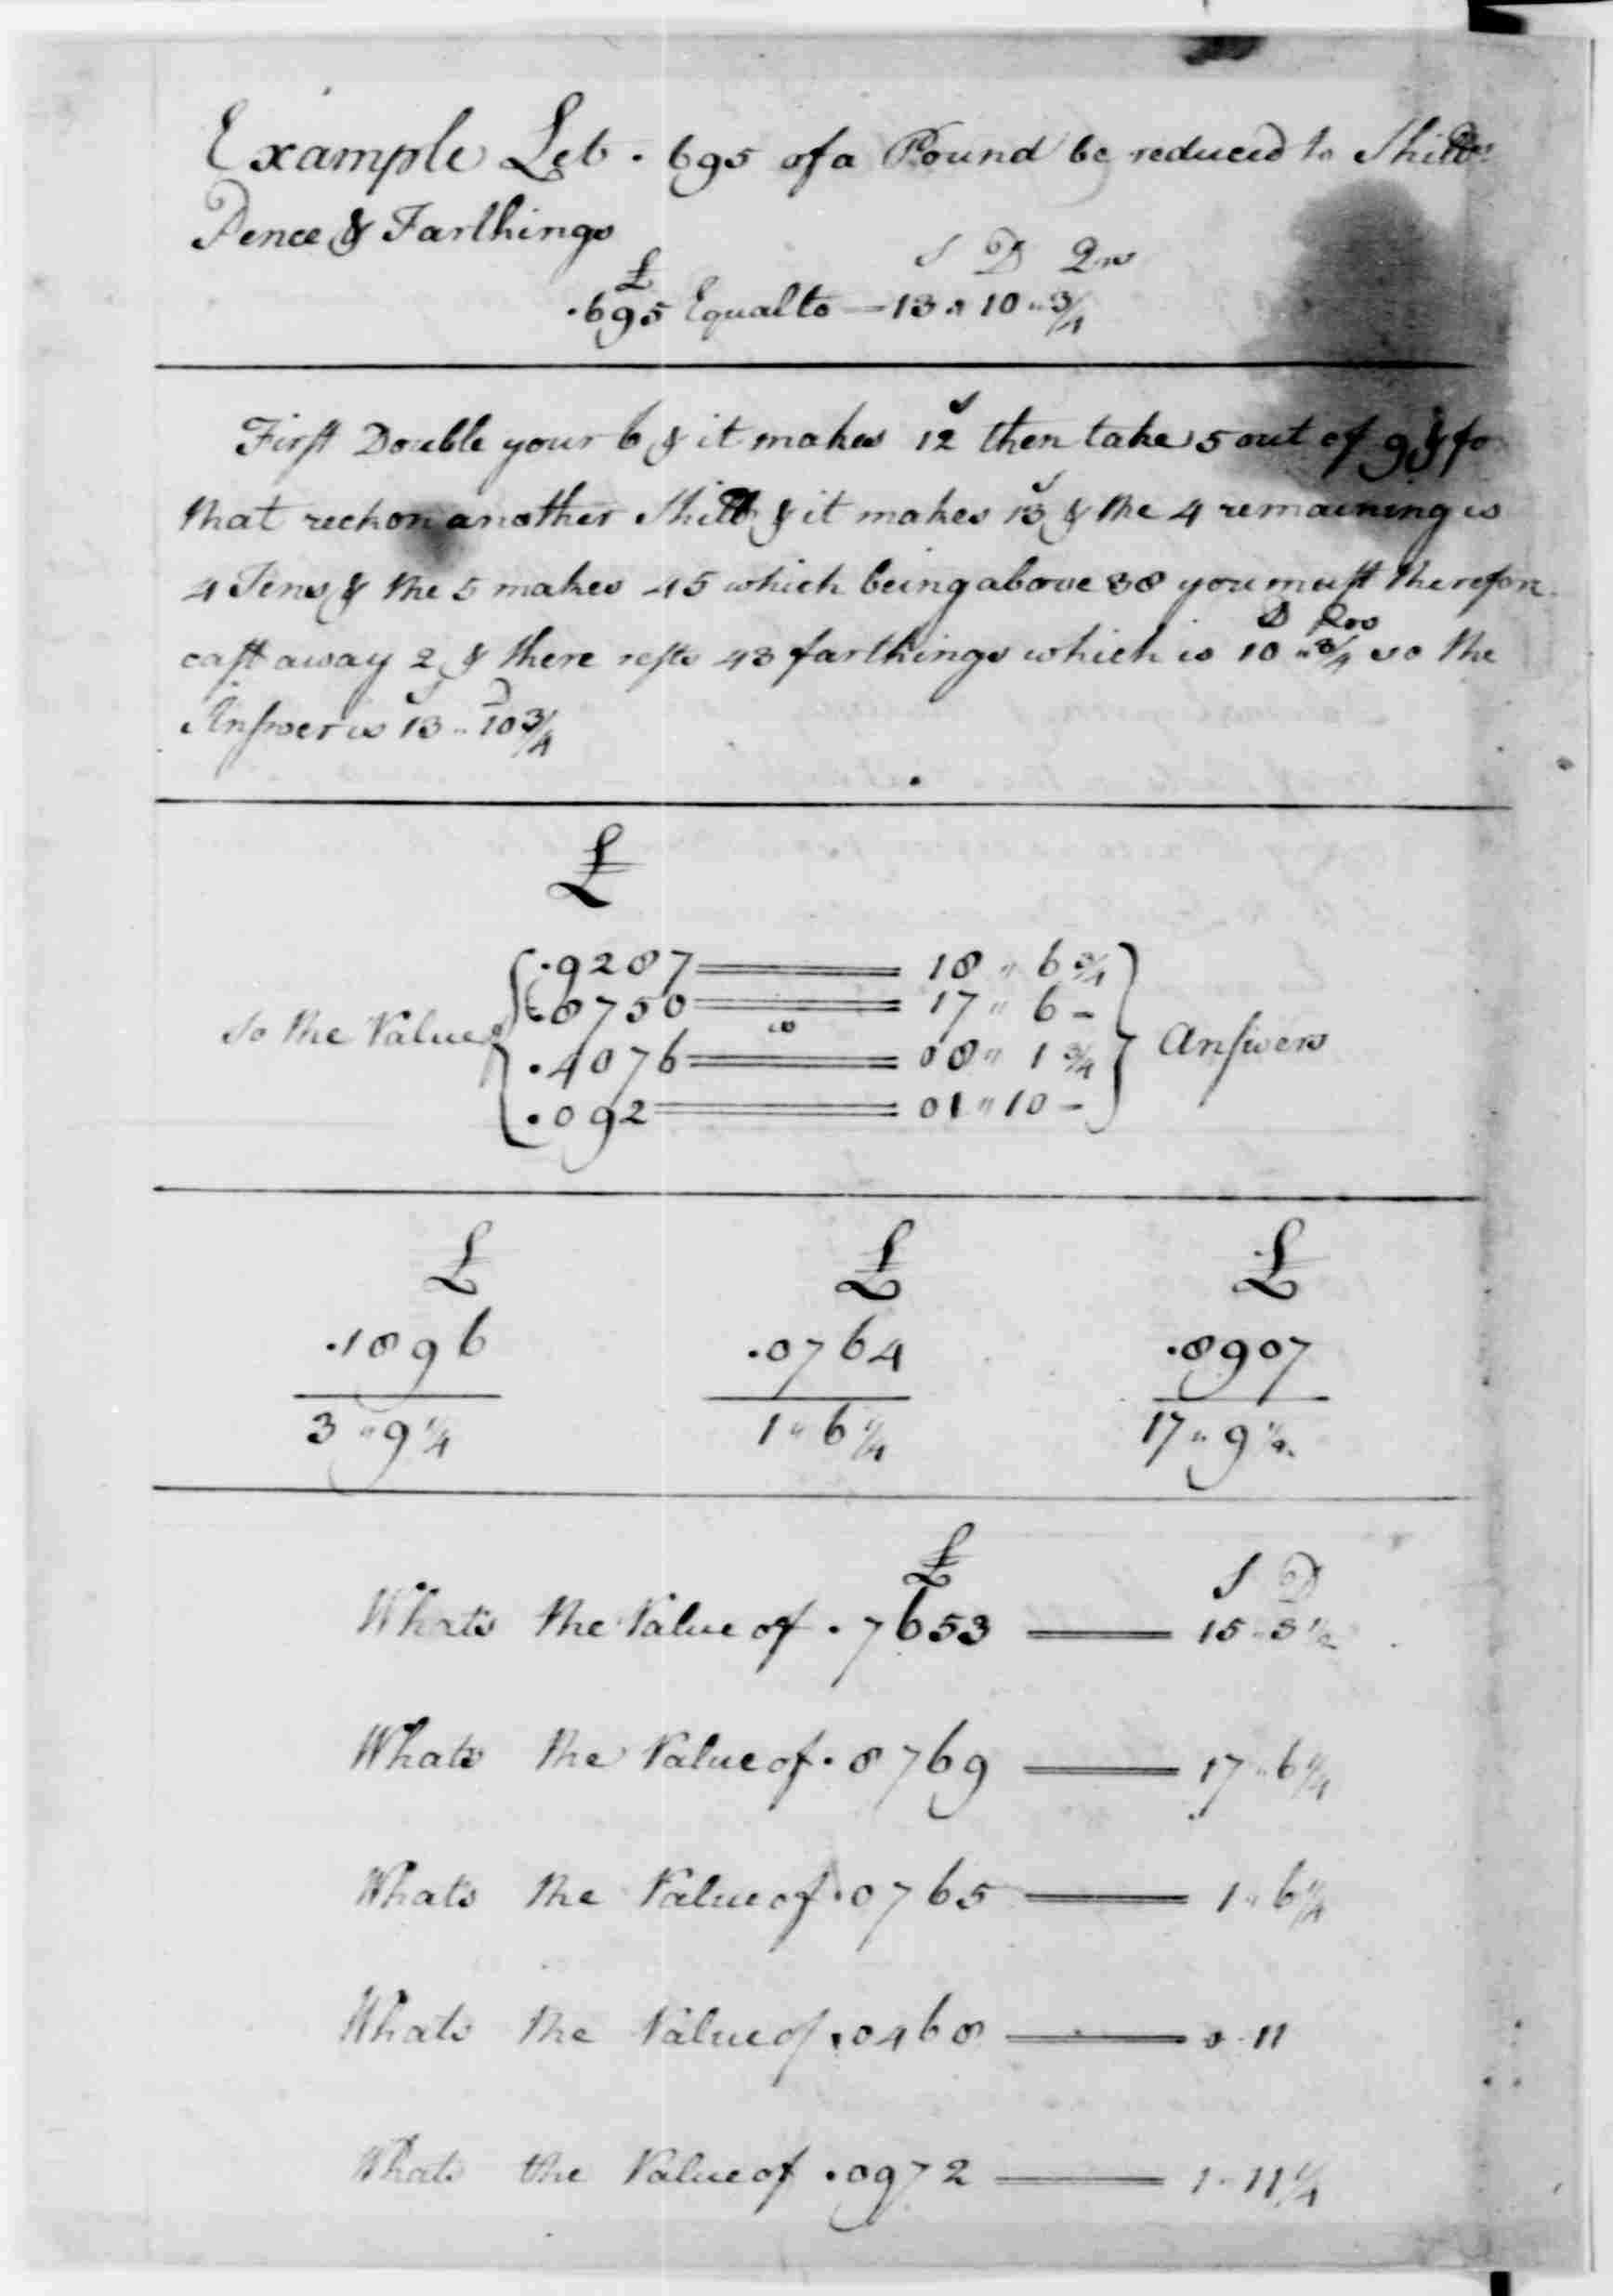 Example Let .695 of a Pound be reduced to Shills
Pence & Farthings
S D Qrs
£
.695 Equal to — 13 " 10 " 3/4
First Double your 6 & it makes 12 then take 5 out of 9 & for
S
that reckon another Shill & it makes 13 & the 4 remaining is
S
4 Tens & the 5 makes 45 which being above 38 you must therefore
D Qrs
cast away 2 & there rests 43 farthings which is 10 " 3/4 so the
S D
Answer is 13 " 10 3/4
£
.9287 = 18 " 6 3/4
.8750 = 17 " 6 -
So the Value of is Answers
.4076 = 08 " 1 3/4
.092 = 01 " 10 -
£ £ £
.1896 .0764 .8907
3 " 9 1/4 1 " 6 1/4 17 " 9 1/2
£ S D
Whats the Value of .7653 — 15 " 3 1/2
Whats the Value of .8769 — 17 " 6 1/4
Whats the Value of .0765 — 1 " 6 1/4
Whats the Value of .0460 — 0 " 11
Whats the Value of .0972 — 1 " 11 1/4